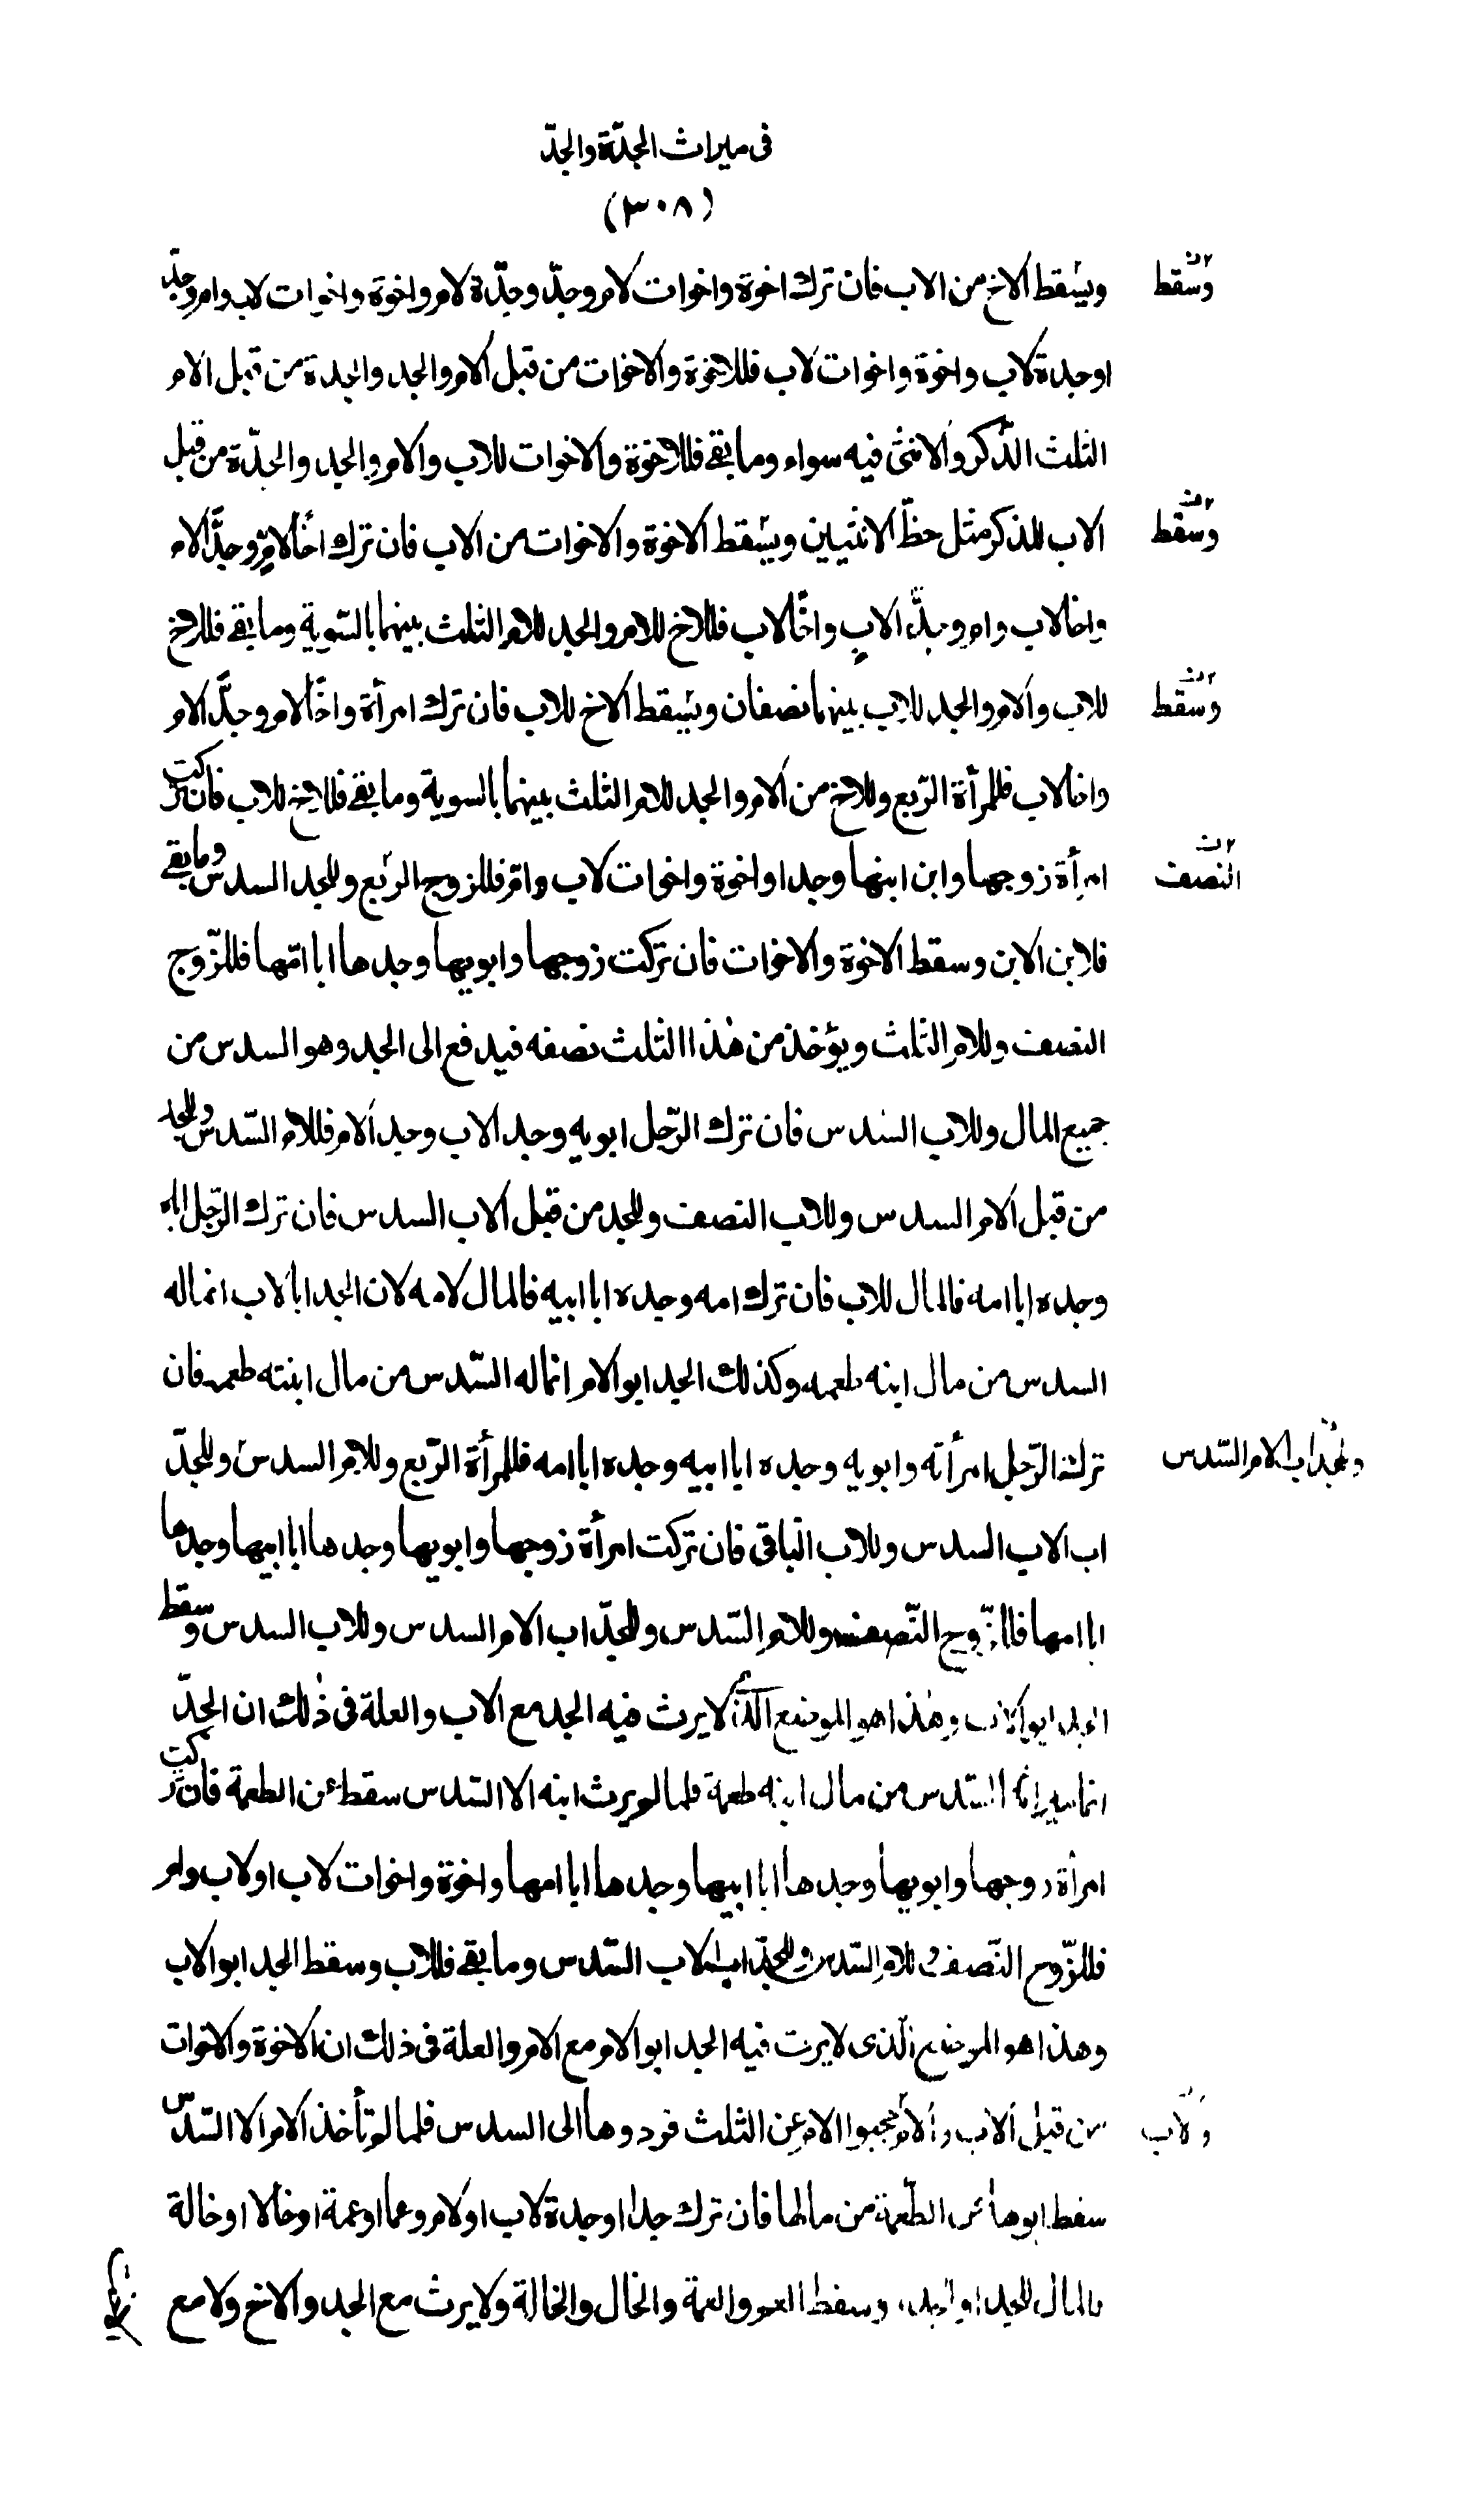 فى ميراث الجدّة والجدّ
(٣٠٨)
ويسقط الاخ من الاب فان ترك اخوة واخوات لام وجدّ وجدّة لام واخوة واخوات لاب وام وجدّ
وسقط
او جدة لاب واخوة واخوات لاب فللاخوة والاخوات من قبل الام والجد والجدة من قبل الام
الثلث الذّكر والانثى فيه سواء وما بقى فللاخوة والاخوات للاب والام والجد والجدّة من قبل
الاب للذكر مثل حظّ الانثيين ويسقط الاخوة والاخوات من الاب فان ترك اخًا لامّ وجدًّا لام
وسقط
واخا لاب وام وجدًّا لاب واخًا لاب فللاخ للام والجد للام الثلث بينهما بالسّوية وما بقى فللاخ
للاب والام والجد للاب بينهما نصفان ويسقط الاخ للاب فان ترك امرأة واخًا لام وجدًّا لام
وسقط
واخا لاب فللمرأة الرّبع وللاخ من الام والجد للام الثلث بينهما بالسوية وما بقى فللاخ للاب فان تركت
امرأة زوجها وابن ابنها وجدا واخوة واخوات لاب وامّ فللزوج الرّبع وللجد السدس وما بقى
النصف
فلابن الابن وسقط الاخوة والاخوات فان تركت زوجها وابويها وجدها ابا امّها فللزّوج
النصف وللام الثلث ويؤخذ من هذا الثلث نصفه فيدفع الى الجد وهو السدس من
جميع المال وللاب السدس فان ترك الرّجل ابويه وجد الاب وجد الام فللام السّدس وللجد
من قبل الام السدس وللاب النصف وللجد من قبل الاب السدس فان ترك الرّجل اباه
وجده ابا امه فالمال للاب فان ترك امه وجده ابا ابيه فالمال لامه لان الجد ابا لاب انما له
السدس من مال ابنه طعمه وكذلك الجد ابو الام انما له السّدس من مال ابنته طعمه فان
ترك الرّجل امرأته وابويه وجده ابا ابيه وجده ابا امه فللمرأة الرّبع وللام السدس وللجدّ
وللجد اب الام السّدس
اب الاب السدس وللاب الباقى فان تركت امرأة زوجها وابويها وجدها ابا ابيها وجدها
ابا امها فللزّوج النّصف وللام السّدس وللجدّ اب الام السدس وللاب السدس وسقط
الجد ابو الاب وهذا هو الموضع الّذى لا يرث فيه الجد مع الاب والعلة فى ذلك ان الجدّ
انما السّدس من مال ابنه طعمة فلما لم يرث ابنه الا السّدس سقط عن الطعمة فان تركت
امرأة زوجها وابويها وجدها ابا ابيها وجدها ابا امها واخوة واخوات لاب او لاب وام
فللزّوج النّصف وللام السّدس وللجدّ اب الاب السّدس وما بقى فللاب وسقط الجد ابو الاب
وهذا هو الموضع الّذى لا يرث فيه الجد ابو الام مع الام والعلة فى ذلك ان الاخوة والاخوات
من قبل الاب والام حجبوا الام عن الثلث فردوها الى السدس فلما لم تأخذ الام الا السّدس
ولاب
سقط ابوها عن الطّعمة من مالها فان ترك جدا او جدة لاب او لام وعما او عمة او خالا او خالة
فالمال للجد او الجدة وسقط العم والعمة والخال والخالة ولا يرث مع الجد والاخ ولا مع